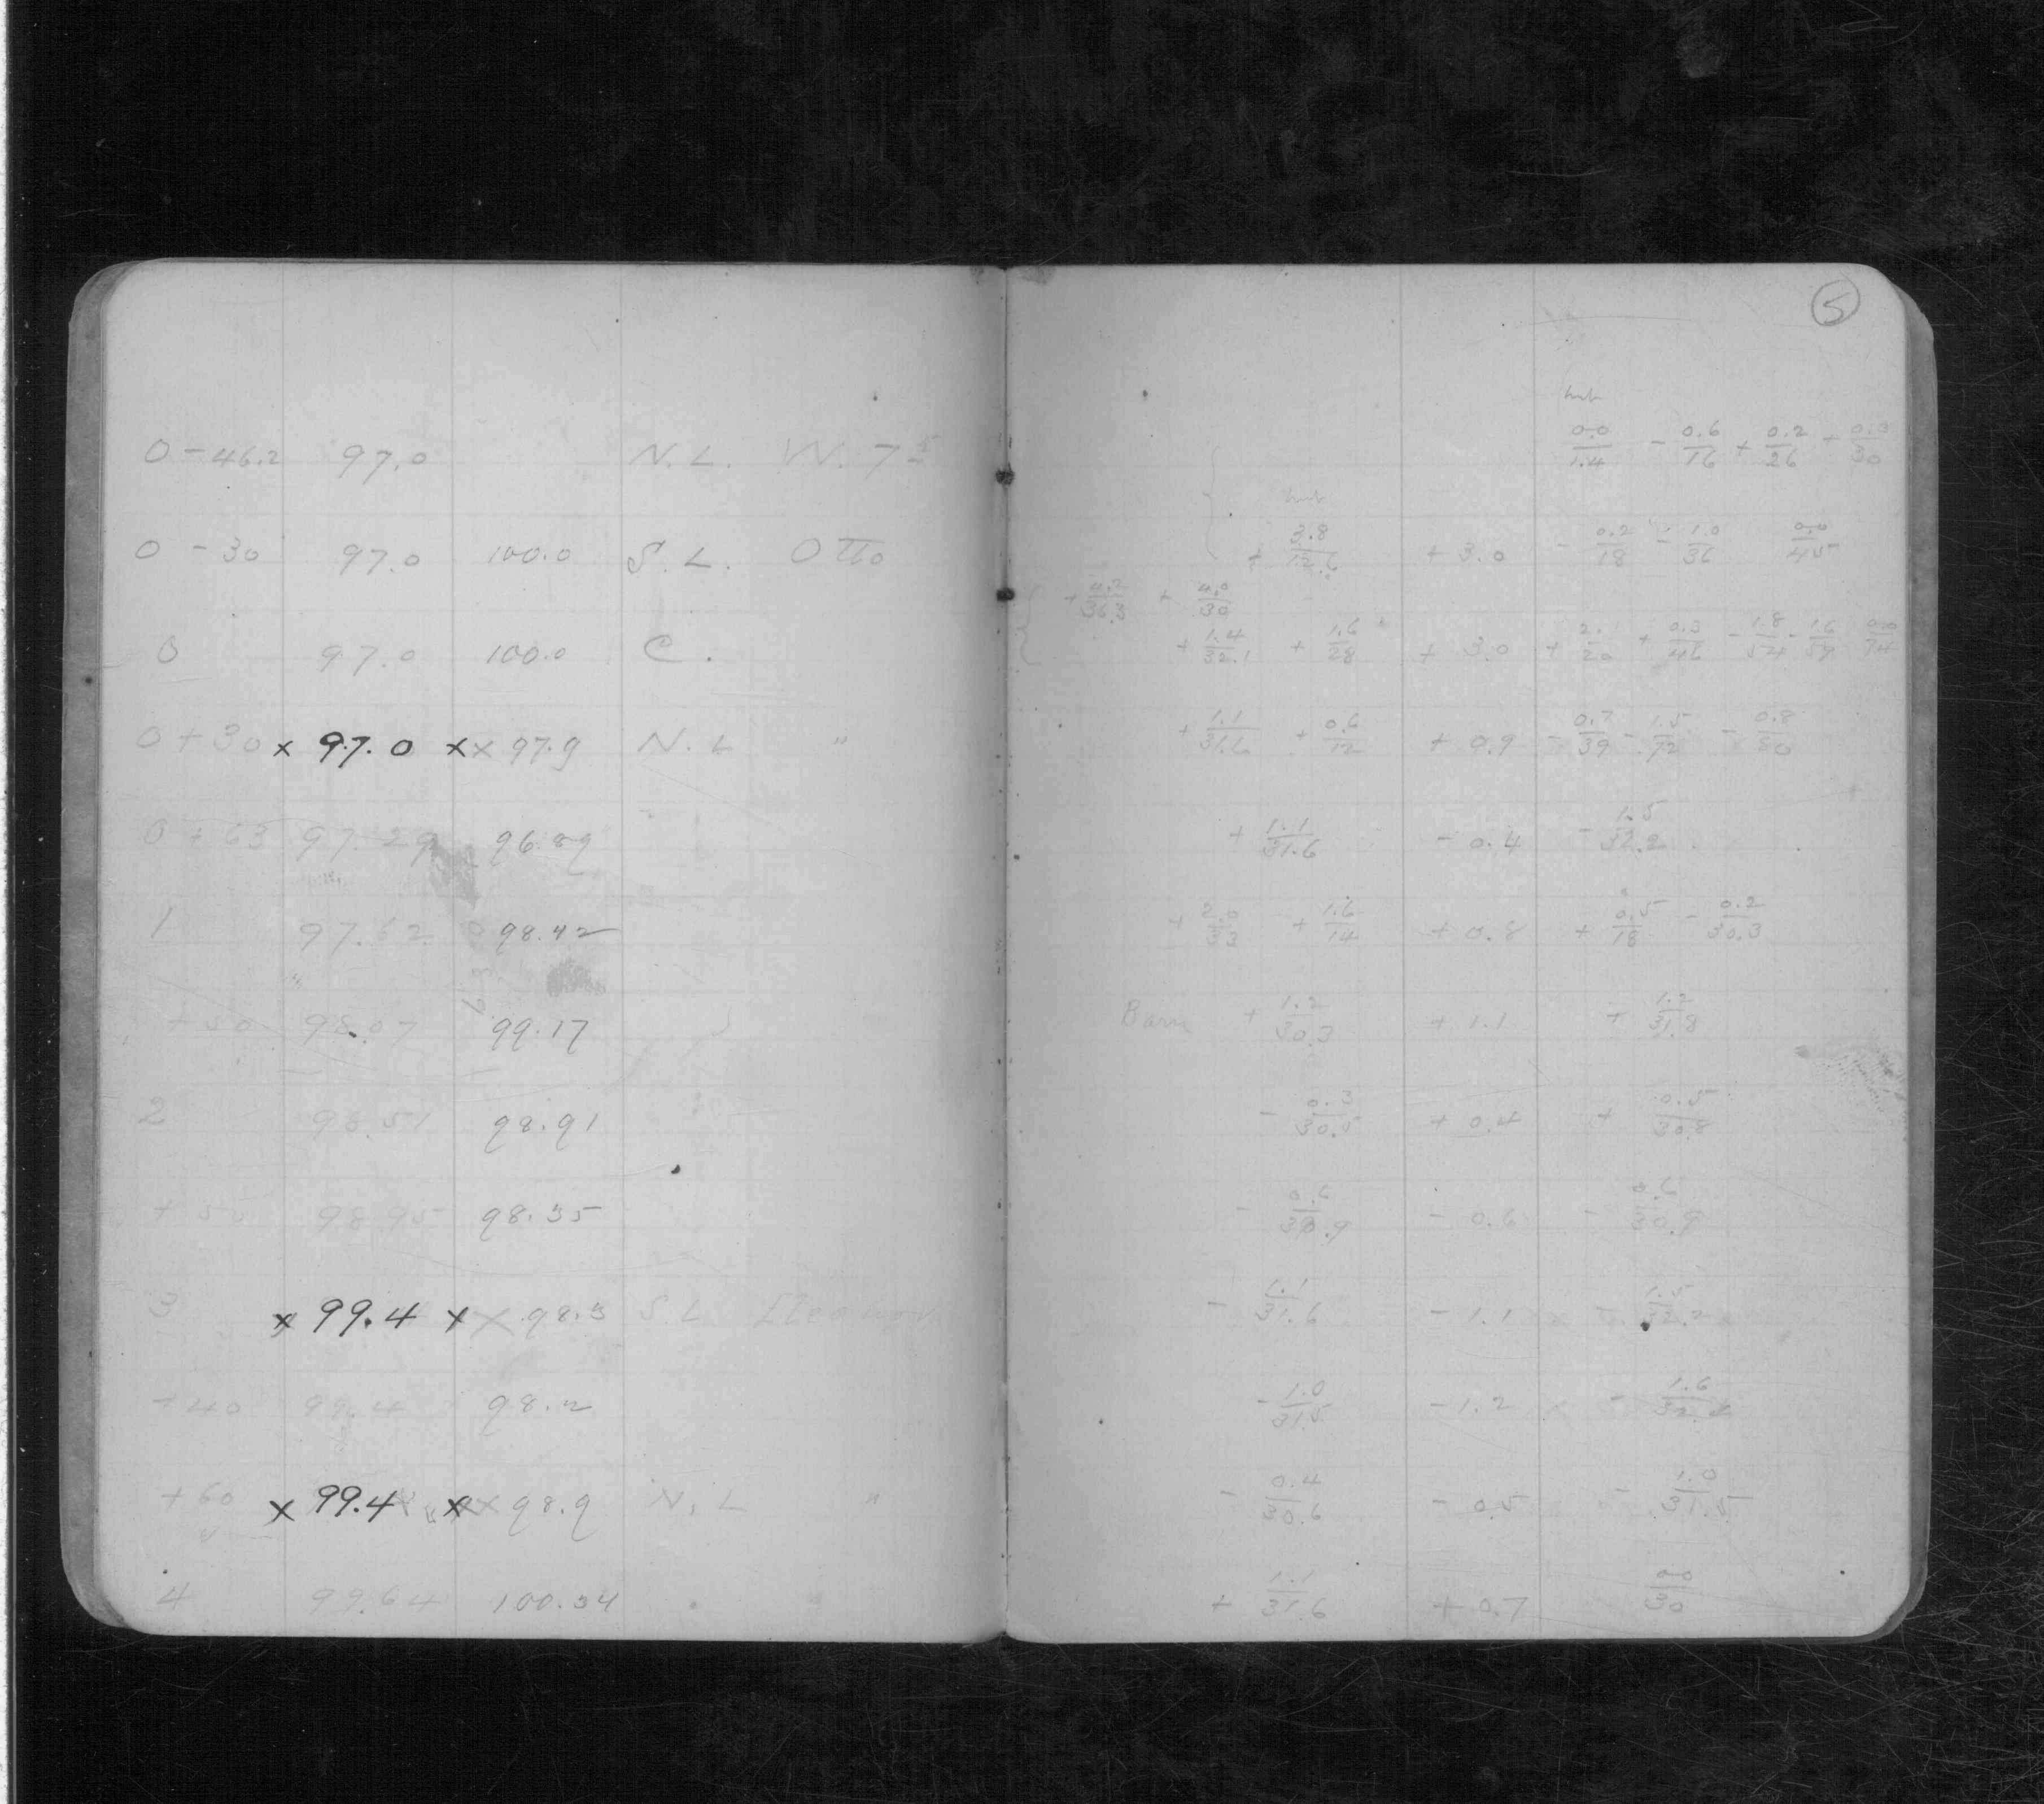 5
0 - 46.2 97.0 N. L. W. 7
hub
0.0/1.4 - 0.6/16 + 0.2/26 + 0.3/30
hub
0 - 30 97.0 100.0 S. L. Otto + 3.8/12.6 + 3.0 - 0.2/18 - 1.0/36 0.0/45
+ 4.2/36.3 + 4.0/30
0 97.0 100.0 C. + 1.4/32.1 + 1.6/28 + 3.0 + 2.1/20 + 0.3/46 - 1.8/54
0 + 30 x 97.0 x x 97.9 N. L " + 1.1/31.6 + 0.6/12 + 0.9 - 0.7/39 - 1.5/72 - 0.8/30
0 + 63 97.29 96.89 + 1.1/31.6 - 0.4 - 1.5/32.2
1 97.62 98.42 + 2.0/33 + 1.6/14 + 0.8 + 0.5/18 - 0.2/30.3
"
+ 50 98.07 99.17 Barn + 1.2/30.3 + 1.1 + 1.2/31.8
2 98.51 98.91 - 0.3/30.5 + 0.4 + 0.5/30.8
+ 50 98.95 98.35 - 0.6/30.9 - 0.6 - 0.6/30.9
3 x 99.4 x x 98.3 S. L - 1.1/31.6 - 1.1 - 1.5/32.2
+ 40 99.4 98.2 - 1.0/31.5 - 1.2 - 1.6/32.4
+ 60 x 99.4 x x 98.9 N. L " - 0.4/30.6 - 0.5 - 1.0/31.5
4 99.64 100.34 + 1.1/31.6 + 0.7 0.0/30